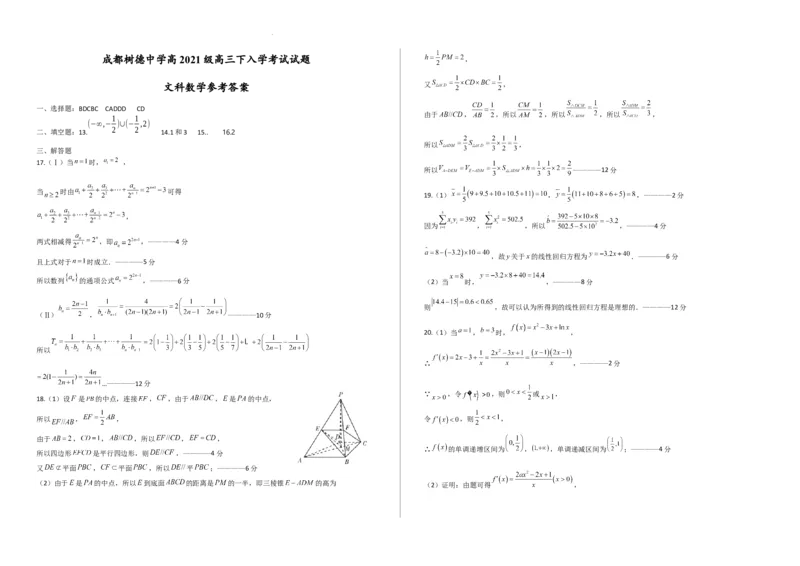 成都树德中学高 2021 级高三下入学考试试题
文科数学参考答案
一、选择题：BDCBC CADDD CD
二、填空题：13. (−∞,−1/2)∪(−1/2,2) 14.1 和 3 15.. 16.2
三、解答题
17.（Ⅰ）当 n=1 时，a₁=2 ，
当 n≥2 时由 a₁+a₂/2+a₃/2²+⋯+
可得
a₁+a₂/2+a₃/2²+⋯+
两式相减得
，即 aₙ=2²ⁿ⁻¹，————4 分
且上式对于 n=1 时成立．————5 分
所以数列 {aₙ} 的通项公式 aₙ=2²ⁿ⁻¹，————6 分
（Ⅱ） bₙ=(2n−1)/2 ，bₙ·bₙ₊₁=4/((2n−1)(2n+1))=2(1/(2n−1)−1/(2n+1)) ————10 分
所以
=2(1−1/(2n+1))=4n/(2n+1) ...————12 分
18.（1）设 F 是 PB 的中点，连接 EF，CF，由于 AB//DC，E 是 PA 的中点，
所以 EF//AB，EF=1/2 AB，
由于 AB=2，CD=1，AB//CD，所以 EF//CD，EF=CD，
所以四边形 EFCD 是平行四边形，则 DE//CF，————4 分
又 DE⊄平面 PBC，CF⊂平面 PBC，所以 DE//平 PBC；————6 分
（2）由于 E 是 PA 的中点，所以 E 到底面 ABCD 的距离是 PM 的一半，即三棱锥 E−ADM 的高为
P
E
F
D
C
M
A
B
h=1/2 PM=2，
又
×CD×BC=1/2，
由于 AB//CD，CD/AB=1/2，CM/AM=1/2，所以
，所以
，
所以
=2/3×1/2=1/3，
所以
=1/3×1/3×2=2/9 ————12 分
19.（1）x̄=1/5(9+9.5+10+10.5+11)=10，ȳ=1/5(11+10+8+6+5)=8，————2 分
因为
=392，
=502.5，所以 b̂=(392−5×10×8)/(502.5−5×10²)=−3.2，————4 分
â=8−(−3.2)×10=40，故 y 关于 x 的线性回归方程为 ŷ=−3.2x+40．————6 分
（2）当 x=8 时，ŷ=−3.2×8+40=14.4，————8 分
则 |14.4−15|=0.6<0.65，故可以认为所得到的线性回归方程是理想的．————12 分
20.（1）当 a=1，b=3 时，f(x)=x²−3x+lnx，
∴ f′(x)=2x−3+1/x=(2x²−3x+1)/x=(x−1)(2x−1)/x，————2 分
∵ x>0，令 f′(x)>0，则 0<x<1/2 或 x>1，
令 f′(x)<0，则 1/2<x<1，
∴ f(x) 的单调递增区间为 (0,1/2)，(1,+∞)，单调递减区间为 (1/2,1)；————4 分
（2）证明：由题可得 f′(x)=(2ax²−2x+1)/x (x>0)，